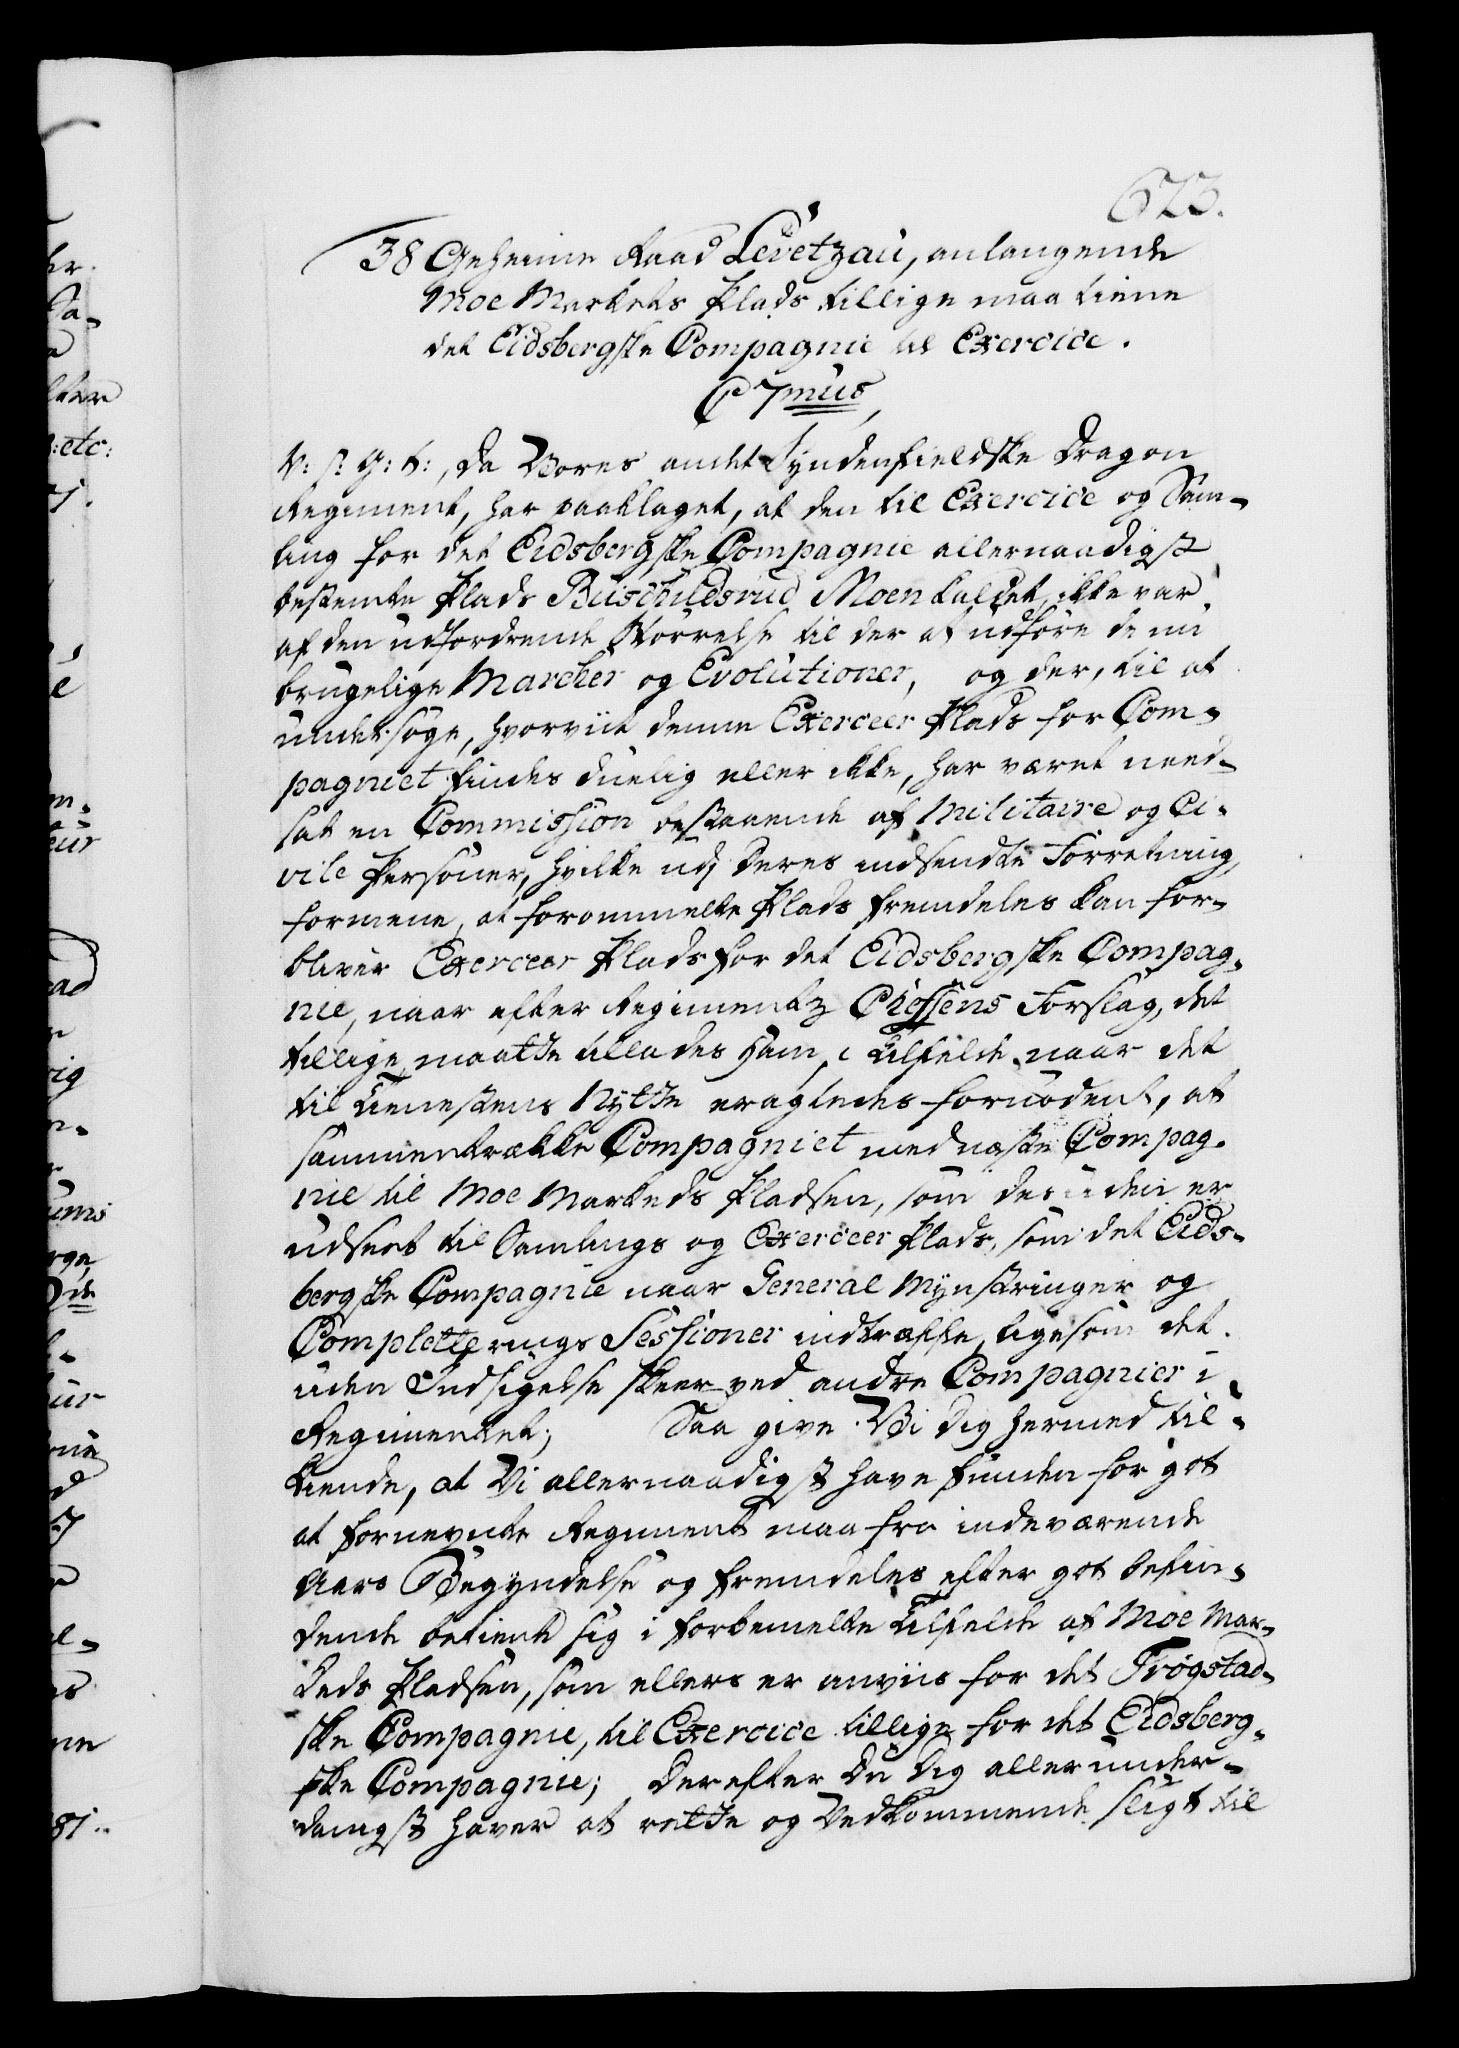 623.
38 Geheime Raad Levetzau, anlangende
Moe Markets Plads tillige maa tiene
det Eidsbergske Compagnie til Exercice.
C 7mus
V: S: G: T:, Da Vores andet Syndenfieldske Dragon
Regiment, har paaklaget, at den til Exercice og Sam-
ling for det Eidsbergske Compagnie allernaadigst
bestemte Plads Buschildsrud Moen kaldet, ikke var
af den udfordrende Størrelse til der at udføre de nu
brugelige Marcher og Evolutioner, og der, til at
undersøge, hvorviit denne Exerceer Plads for Com-
pagniet findes duelig eller ikke, har været need-
sat en Commission bestaaende af Militaire og Ci-
vile Personer, hvilke udj deres indsendte Forretning,
formene, at forommelte Plads fremdeles kan for-
blive Exerceer Plads for det Eidsbergske Compag-
nie, naar efter Regimentz Cheffens Forslag, det
tillige maatte tillades ham, i Tilfelde naar det
til Tienestens Nytte eragtedes fornødent, at
sammentrække Compagniet med næste Compag-
nie til Moe Markeds Pladsen, som desuden er
udseet til Samlings og Exerceer Plads, som det Eids-
bergske Compagnie naar General Mynstringer og
Completterings Sessioner indtræffe, ligesom det
uden Indsigelse skeer ved andre Compagnier i
Regimentet; Saa give Vi Dig hermed til-
kiende, at Vi allernaadigst have funden for got
at fornevnte Regiment maa fra indeværende
Aars Begyndelse og fremdeles efter got befin-
dende betiene sig i forbemelte Tilfelde af Moe Mar-
keds Pladsen, som ellers er anviis for det Trøgstad-
ske Compagnie, til Exercice tillige for det Eidsberg-
ske Compagnie; Derefter Du Dig allerunder-
danigst haver at rette og Vedkommende sligt til